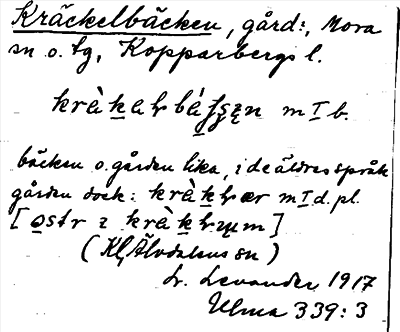 Kräckelbäcken, gård:, Mora
sn o. tg, Kopparbergs l.
kràkalr bá m I b.
bäcken o. gården lika, i de äldres språk
gården dock: krèkhær m I d. pl.
[ østr i krèkhrum ]
(Kl, Älvdalens sn)
L. Levander 1917
Ulma 339:3